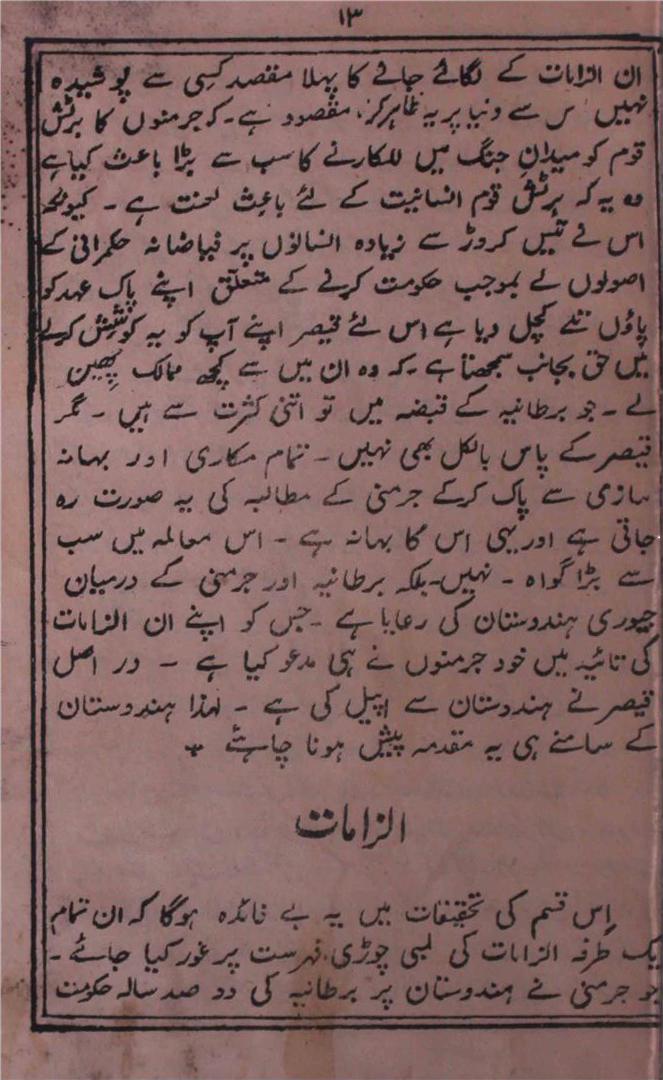 ۱۳
ان الزامات کے لگائے جانے کا پہلا مقصد کسی سے پوشیدہ
نہیں س سے دنیا پر یہ ظاہر کرنا مقصود ہے۔ کہ جرمنوں کا برٹش
قوم کو میدانِ جنگ میں للکارنے کا سب سے بڑا باعث کیا ہے
وہ یہ کہ برٹش قوم انسانیت کے لئے باعثِ لعنت ہے ۔ کیونکہ
اس نے تیس کروڑ سے زیادہ انسانوں پر فیاضانہ حکمرانی کے
اصولوں کے بموجب حکومت کرنے کے متعلق اپنے پاک عہد کو
پاؤں تلے کچل دیا ہے اس لئے قیصر اپنے آپ کو یہ کوشش کرنے
میں حق بجانب سمجھتا ہے ۔ کہ وہ ان میں سے کچھ ممالک چھین
لے ۔ جو برطانیہ کے قبضہ میں تو اتنی کثرت سے ہیں ۔ مگر
قیصر کے پاس بالکل بھی نہیں ۔ تمام مکاری اور بہانہ
سازی سے پاک کرکے جرمنی کے مطالبہ کی یہ صورت رہ
جاتی ہے اور یہی اس کا بہانہ ہے ۔ اس معاملہ میں سب
سے بڑا گواہ ۔ نہیں۔ بلکہ برطانیہ اور جرمنی کے درمیان
جیوری ہندوستان کی رعایا ہے ۔ جس کو اپنے ان الزامات
کی تائید میں خود جرمنوں نے ہی مدعو کیا ہے ۔ در اصل
قیصر نے ہندوستان سے اپیل کی ہے ۔ لہذا ہندوستان
کے سامنے ہی یہ مقدمہ پیش ہونا چاہئے *
الزامات
اِس قسم کی تحقیقات میں یہ بے فائدہ ہوگا کہ ان تمام
یک طرفہ الزامات کی لمبی چوڑی فہرست پر غور کیا جائے ۔
جو جرمنی نے ہندوستان پر برطانیہ کی دو صد سالہ حکومت